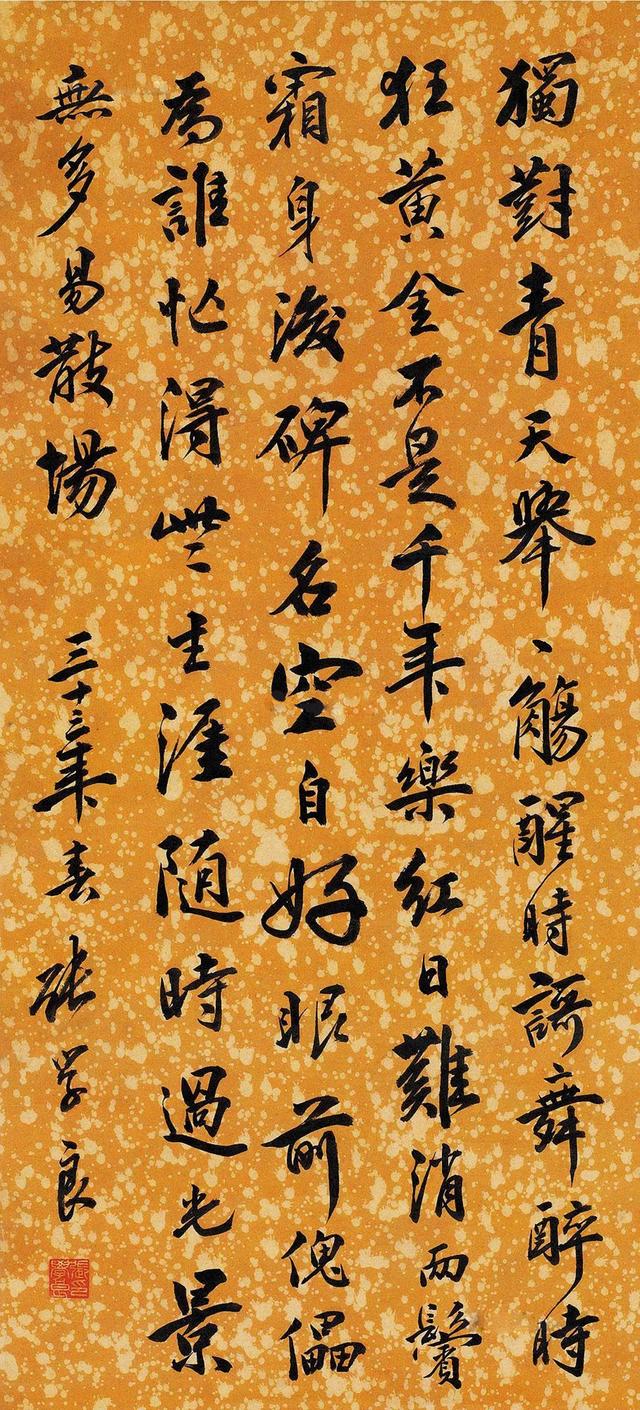 獨對青天舉一觴醒時謌舞醉時
狂黄金不是千年樂紅日難消兩鬢
霜身後碑名空自好眼前傀儡
為誰忙得些生涯隨時過光景
無多易散場 三十三年春 張学良